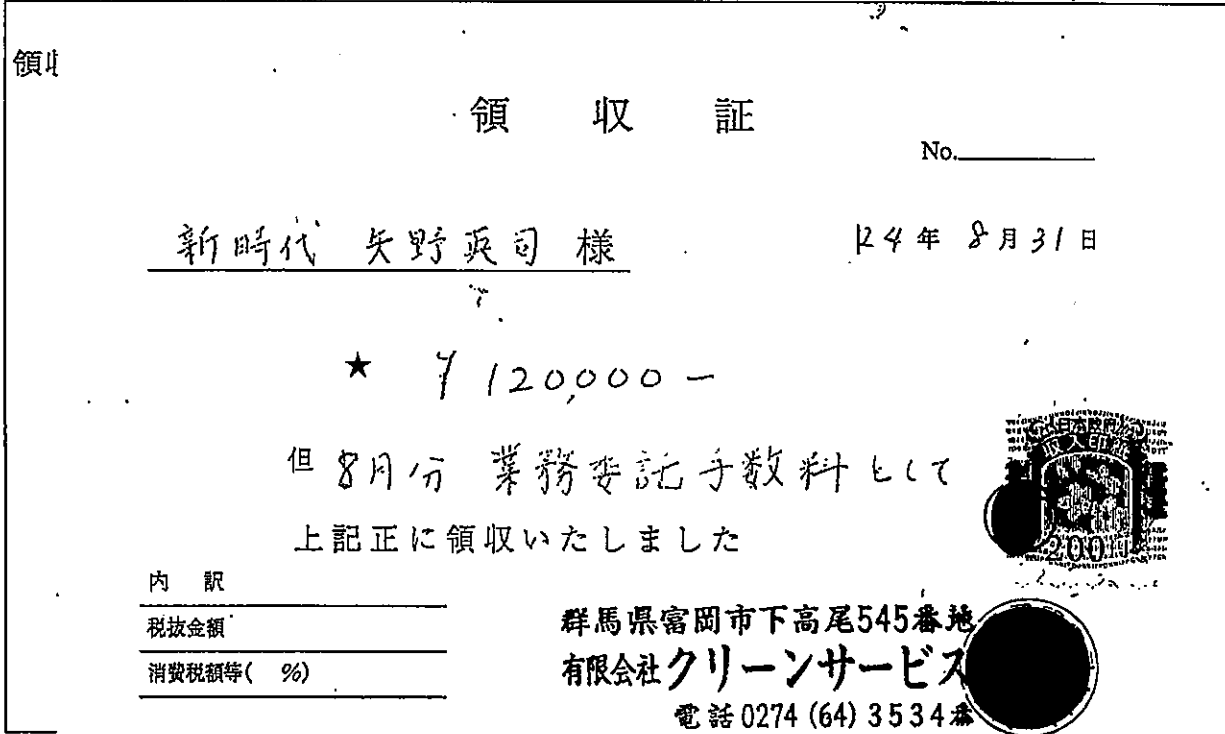 領収
領 収 証
No.
新時代 矢野英司 様
24年 8月31日
★ ¥120,000-
但 8月分 業務委託手数料として
上記正に領収いたしました
日本政府
200
内 訳
税抜金額
消費税額等( %)
群馬県富岡市下高尾545番地
有限会社クリーンサービス
電話0274(64)3534番